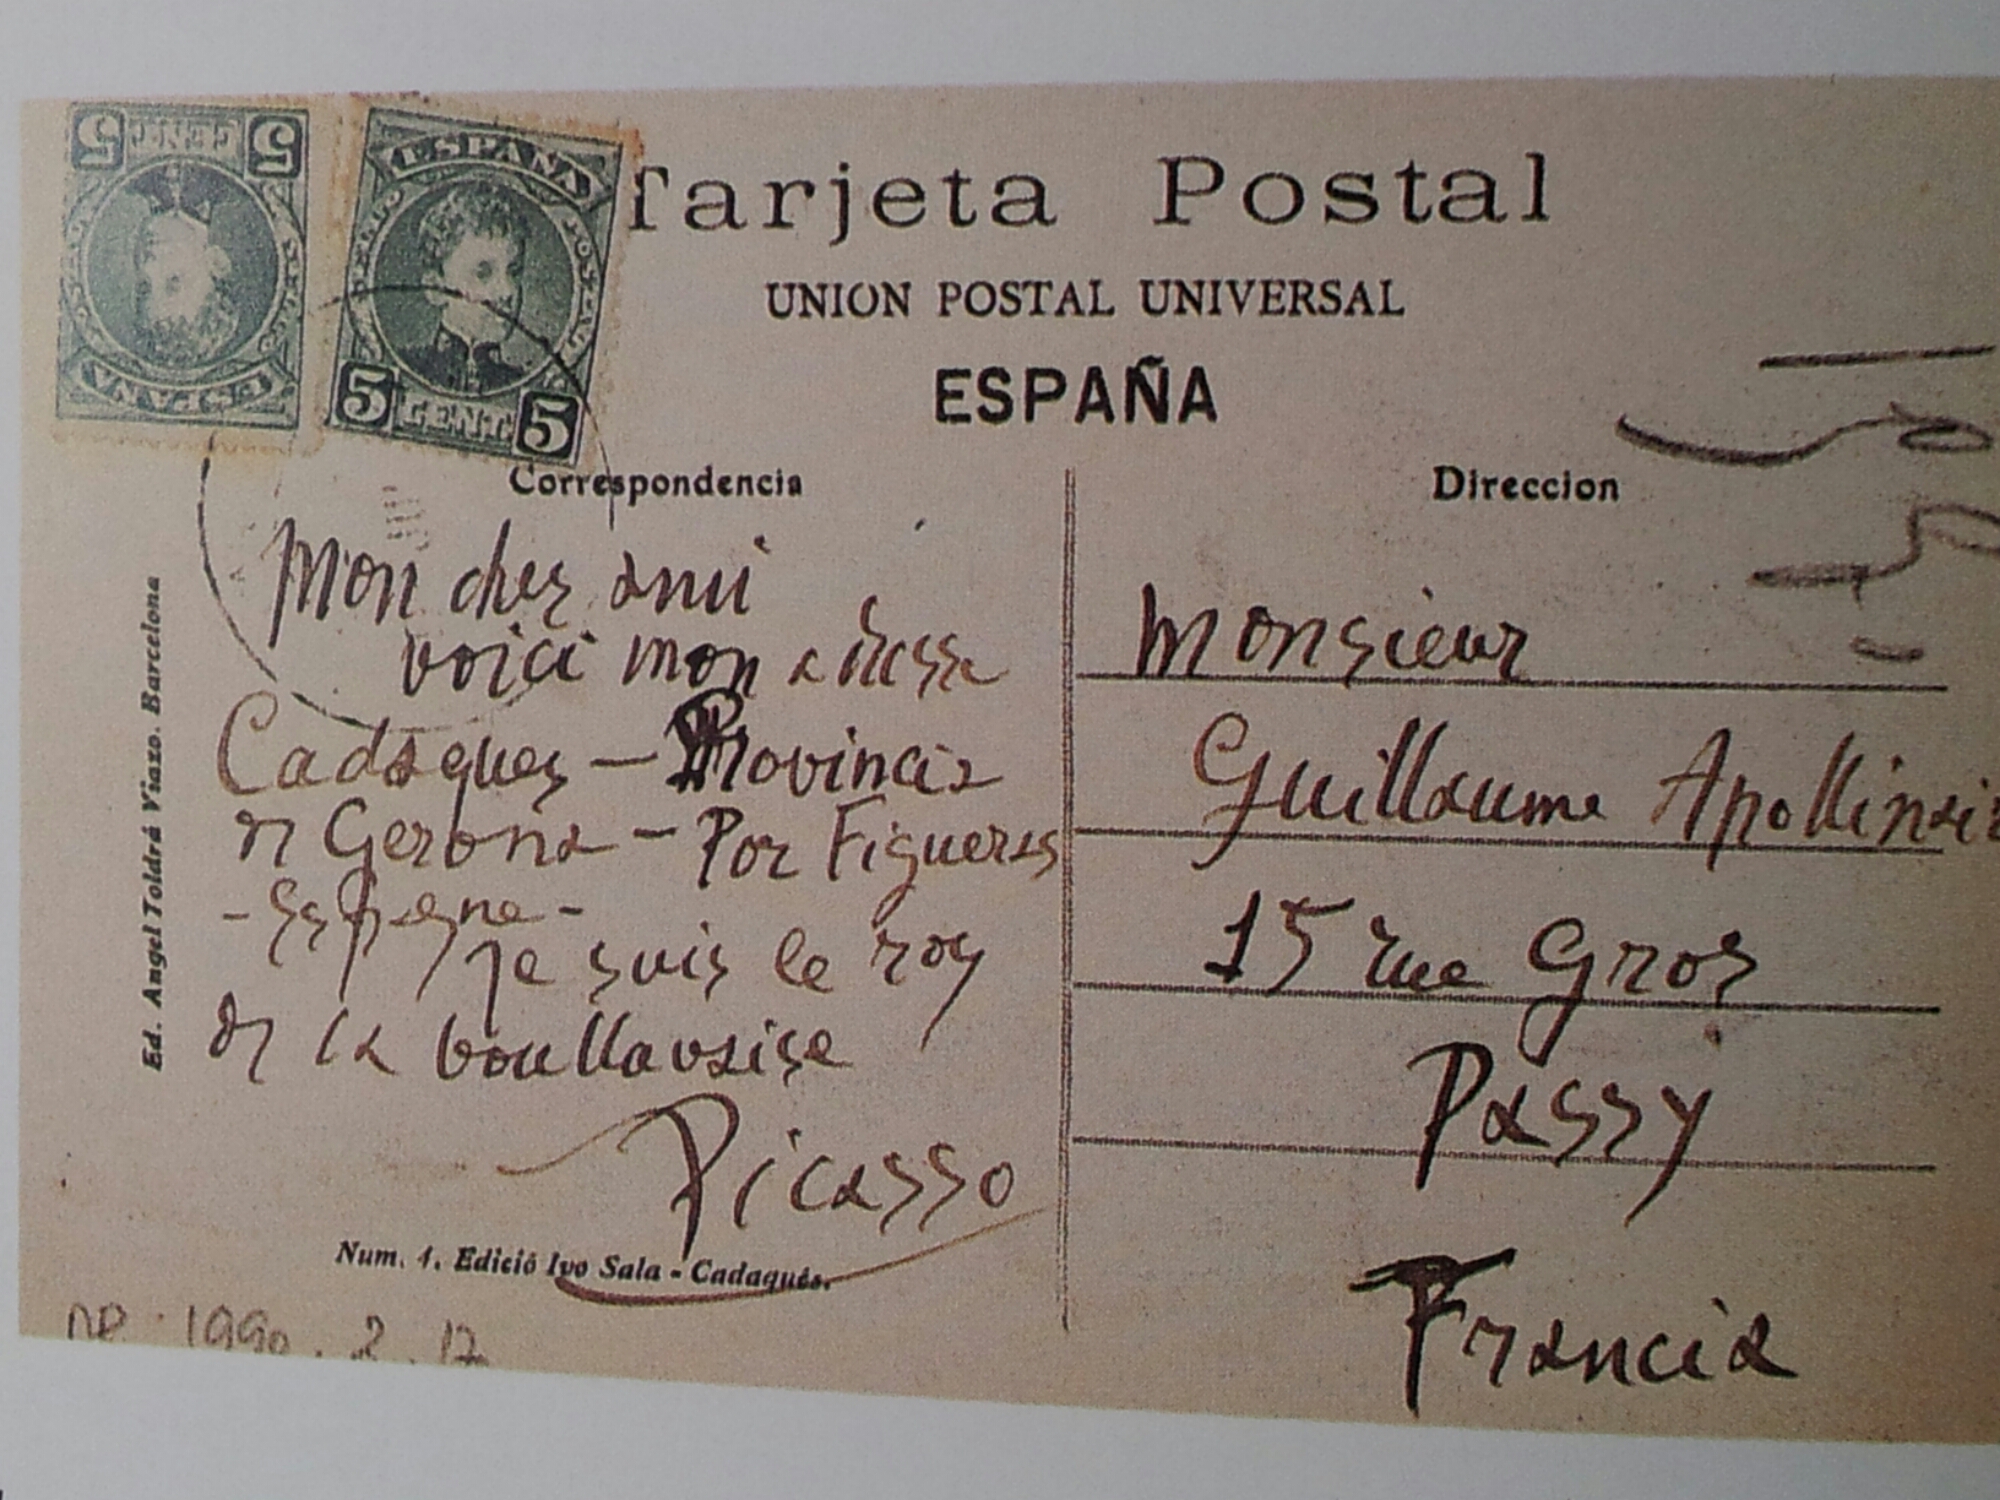 5 CENT 5
ESPAÑA
ESPAÑA
SELLO POSTAL
5 CENT 5
Tarjeta Postal
UNION POSTAL UNIVERSAL
ESPAÑA
Correspondencia
Mon cher ami
voici mon adresse
Cadaques – Provincia
de Gerona – Por Figueras
- Espagne -
Je suis le roy
de la boullavaise
Picasso
Num. 1. Edició Ivo Sala - Cadaqués.
Ed. Angel Toldrá Viazo. Barcelona
1990. 2. 17
Direccion
Monsieur
Guillaume Apollinair
15 rue Gros
Passy
Francia